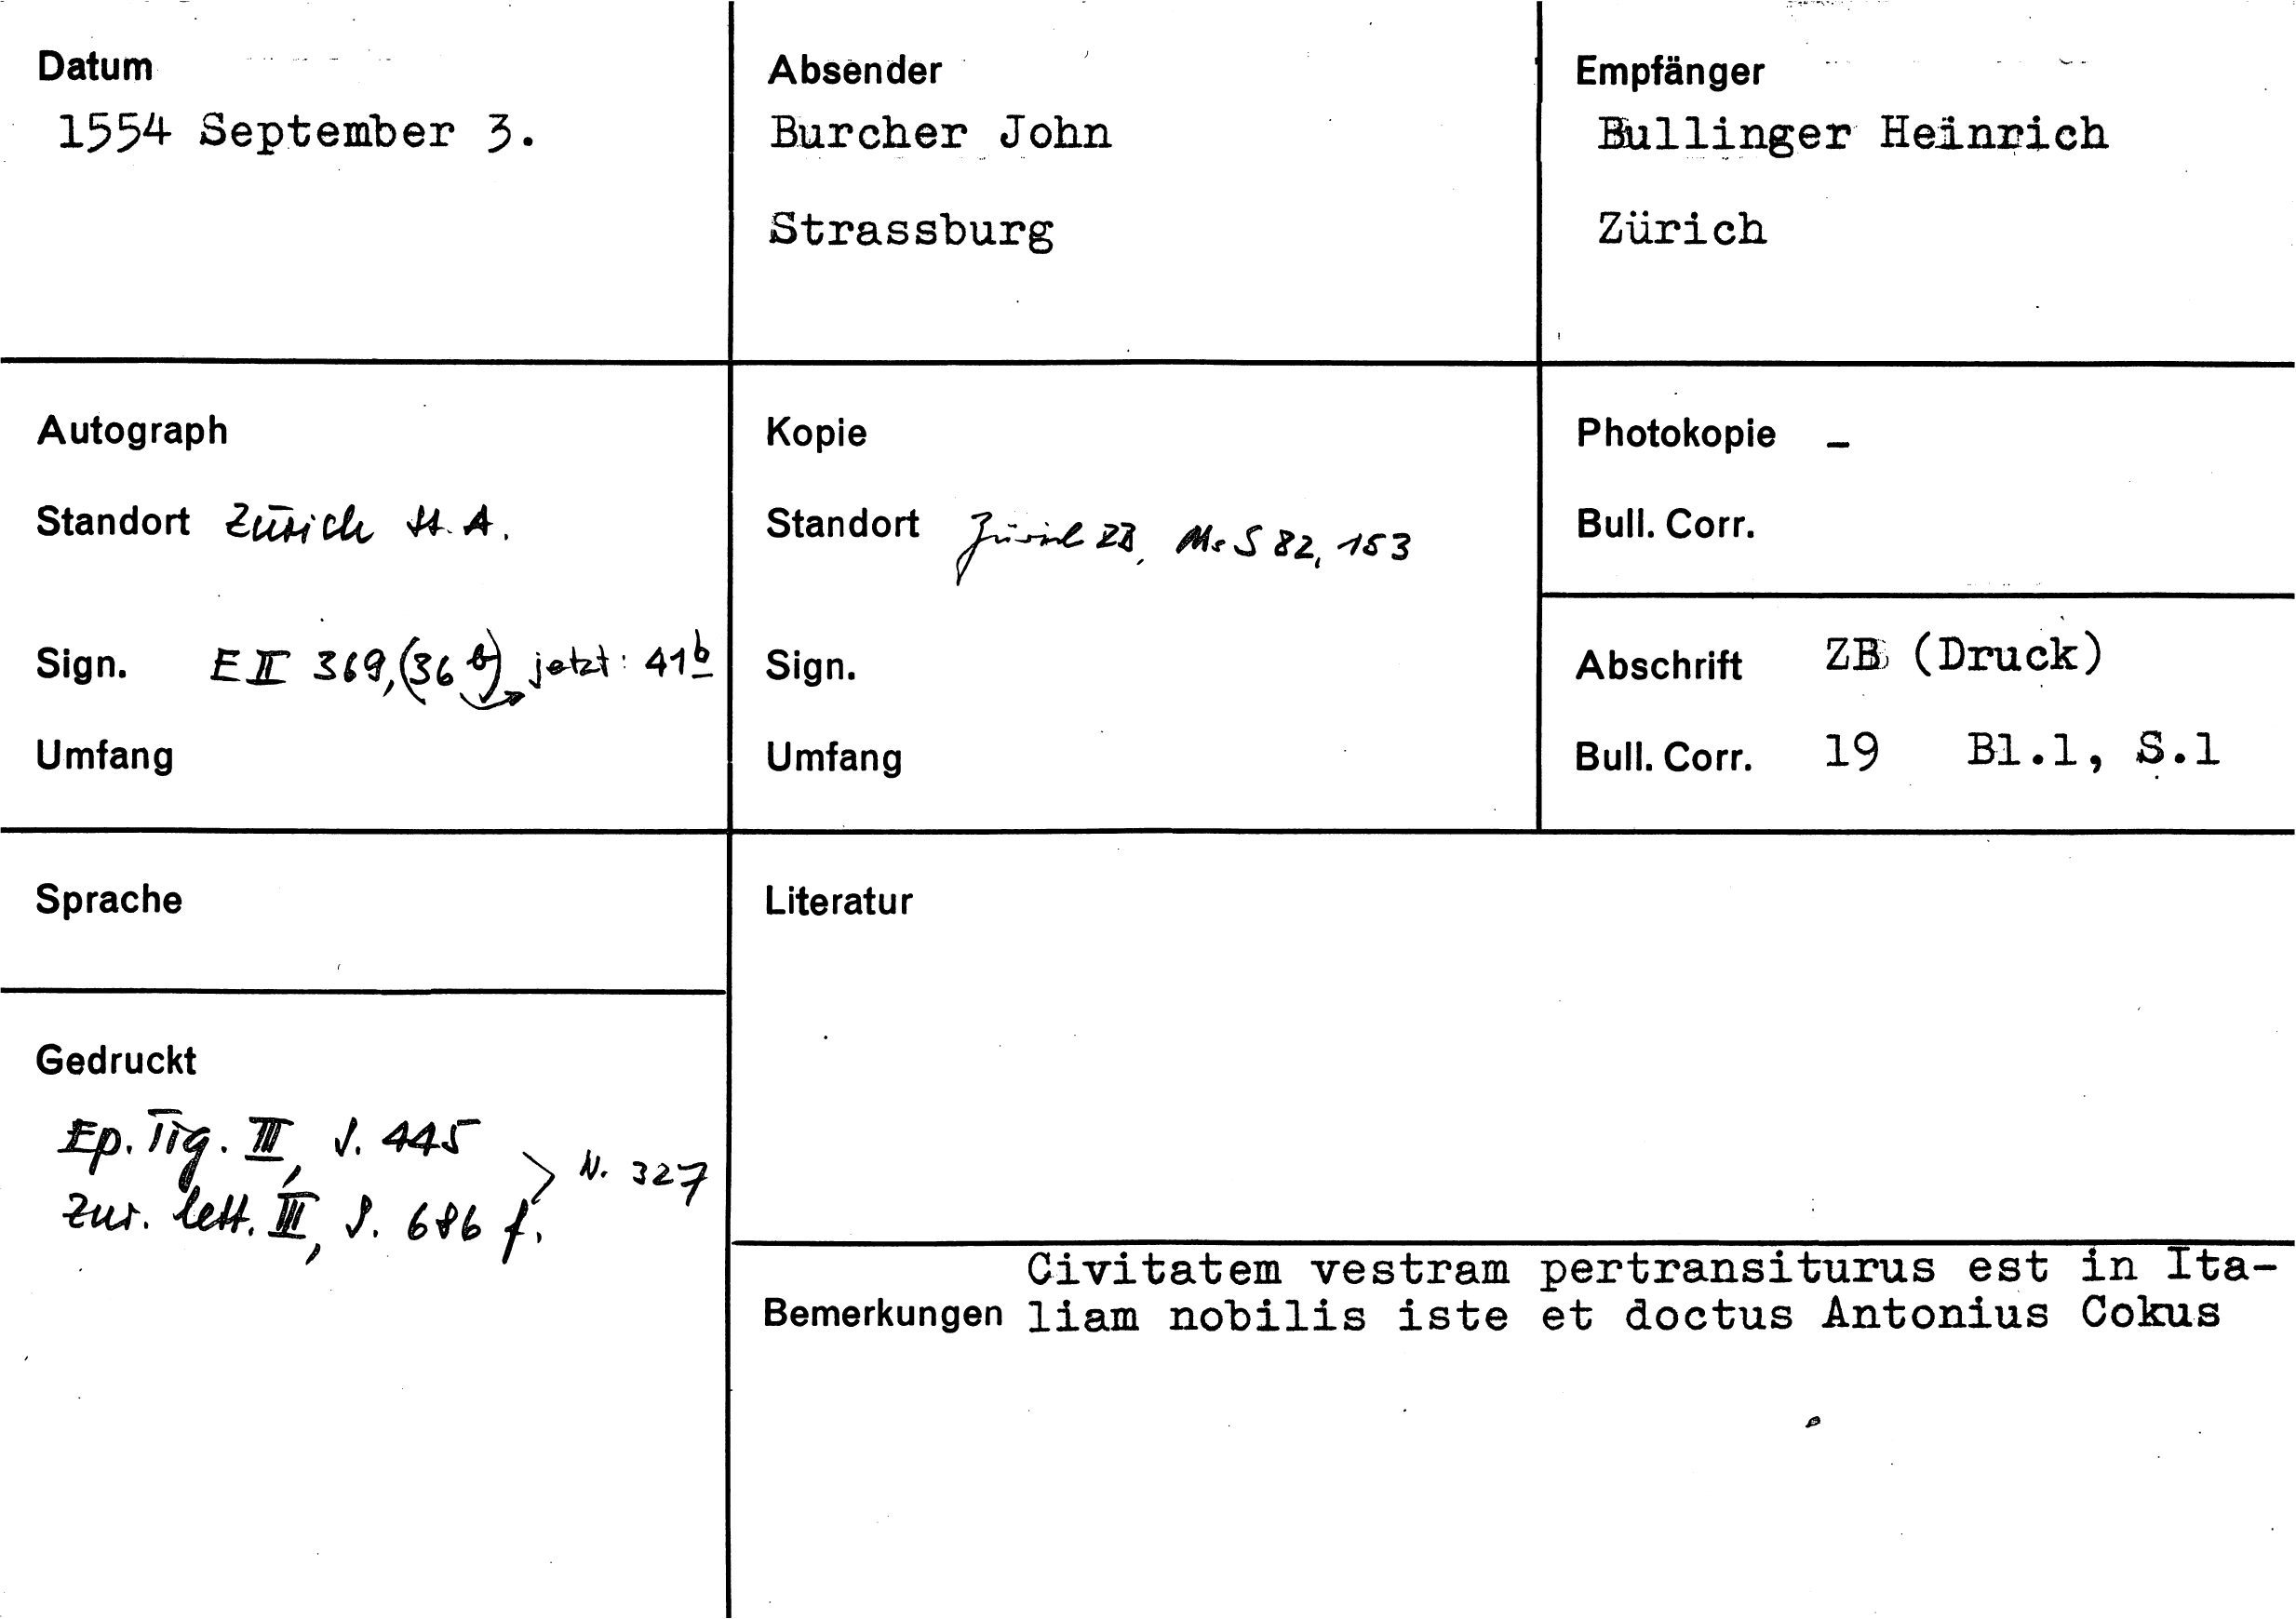 Datum
1554 September 3.
Absender
Burcher John
Strassburg
Empfänger
Bullinger Heinrich
Zürich
Autograph
Standort Zürich St. A.
Sign. E II 369, (36 b) jetzt: 41b
Umfang
Kopie
Standort Zürich ZB, Ms S 82, 153
Sign.
Umfang
Photokopie –
Bull. Corr.
Abschrift ZB (Druck)
Bull. Corr. 19 Bl.1, S.1
Sprache
Gedruckt
Ep. Tig. III, S. 445
Zur. lett. III, S. 686 f.
N. 327
Literatur
Bemerkungen
Civitatem vestram pertransiturus est in Ita-
liam nobilis iste et doctus Antonius Cokus